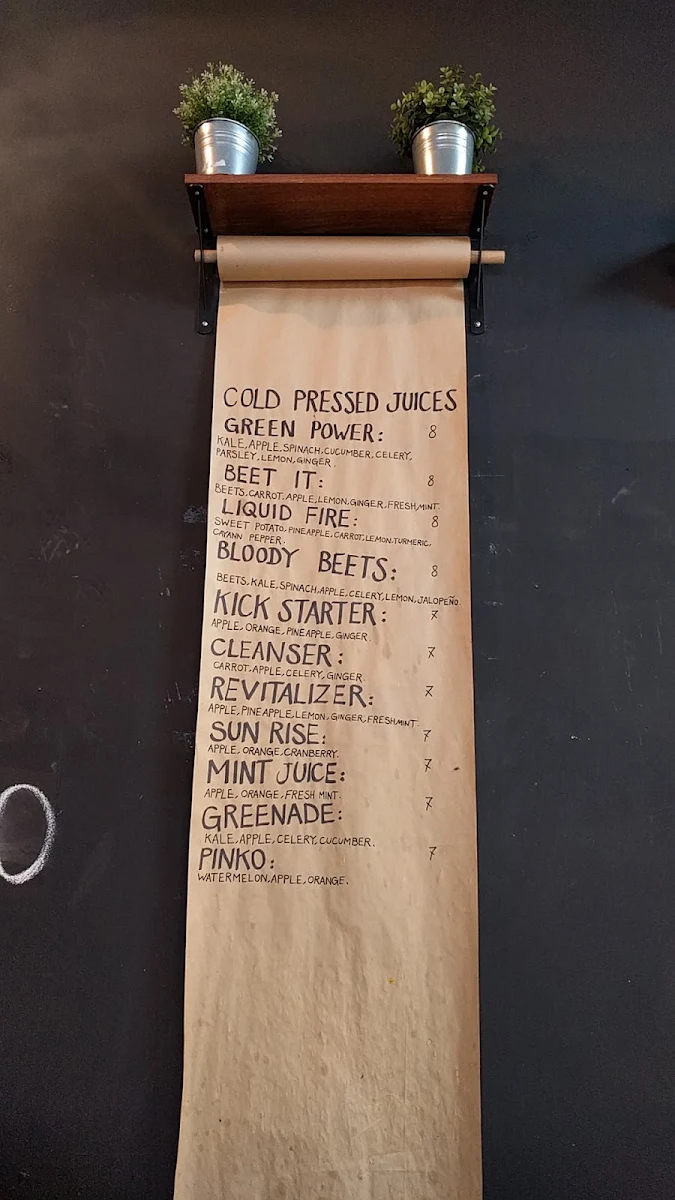 COLD PRESSED JUICES
GREEN POWER: 8
KALE, APPLE, SPINACH, CUCUMBER, CELERY,
PARSLEY, LEMON, GINGER.
BEET IT: 8
BEETS, CARROT, APPLE, LEMON, GINGER, FRESH, MINT.
LIQUID FIRE: 8
SWEET POTATO, PINEAPPLE, CARROT, LEMON, TURMERIC,
CAYANN PEPPER.
BLOODY BEETS: 8
BEETS, KALE, SPINACH, APPLE, CELERY, LEMON, JALOPEÑO.
KICK STARTER: 7
APPLE, ORANGE, PINEAPPLE, GINGER.
CLEANSER: 7
CARROT, APPLE, CELERY, GINGER.
REVITALIZER: 7
APPLE, PINEAPPLE, LEMON, GINGER, FRESH MINT.
SUN RISE: 7
APPLE, ORANGE, CRANBERRY.
MINT JUICE: 7
APPLE, ORANGE, FRESH MINT.
GREENADE: 7
KALE, APPLE, CELERY, CUCUMBER.
PINKO: 7
WATERMELON, APPLE, ORANGE.